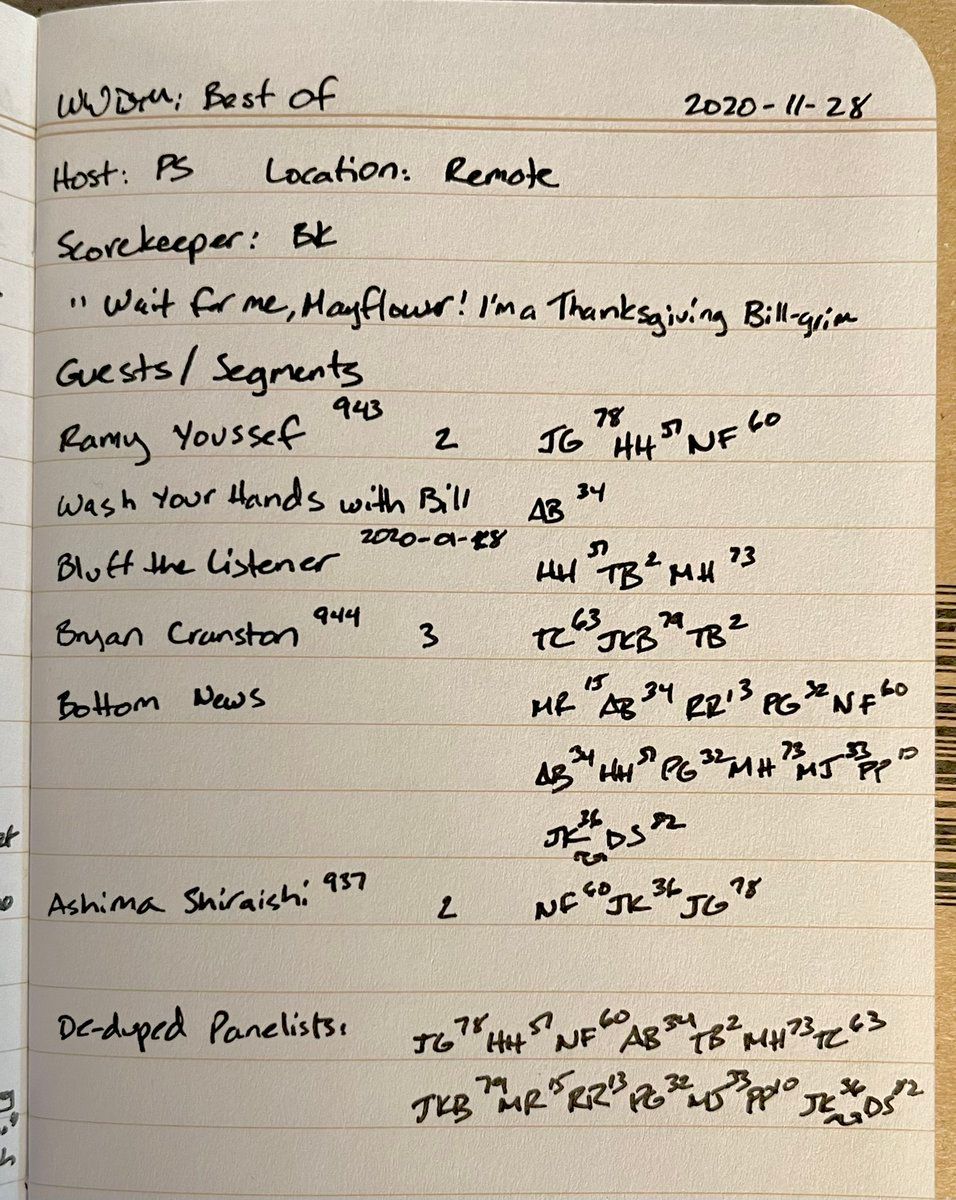 WWDTM: Best Of 2020-11-28
Host: PS Location: Remote
Scorekeeper: BK
"Wait for me, Mayflower! I'm a Thanksgiving Bill-grim
Guests / Segments
Ramy Youssef 943 2 JG 78 HH 51 NF 60
Wash Your Hands with Bill AB 34
Bluff the Listener 2020-01- HH 51 TB 2 MH 73
Bryan Cranston 944 3 TC 63 JKB 79 TB 2
Bottom News MR 15 AB 34 RR 13 PG 32 NF 60
AB 34 HH 51 PG 32 MH 73 MJ 53 PP 10
JK 36 DS 82
Ashima Shiraishi 937 2 NF 60 JK 36 JG 78
De-duped Panelists: JG 78 HH 51 NF 60 AB 34 TB 2 MH 73 TC 63
JKB 79 MR 15 RR 13 PG 32 MJ 53 PP 10 JK 36 DS 82